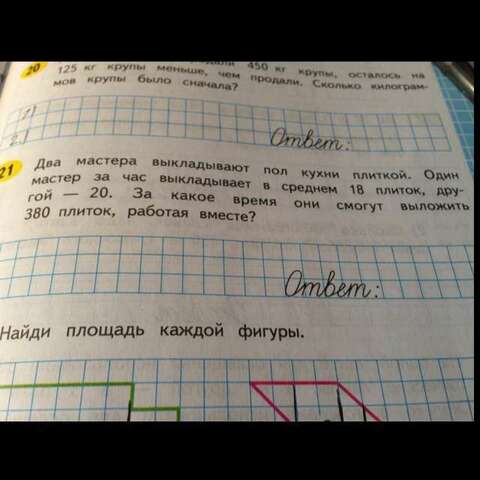 20
450 кг крупы, осталось на
125 кг крупы меньше, чем продали. Сколько килограм-
мов крупы было сначала?
1)
2.)
Ответ:
21
Два мастера выкладывают пол кухни плиткой. Один
мастер за час выкладывает в среднем 18 плиток, дру-
гой — 20. За какое время они смогут выложить
380 плиток, работая вместе?
Ответ:
Найди площадь каждой фигуры.